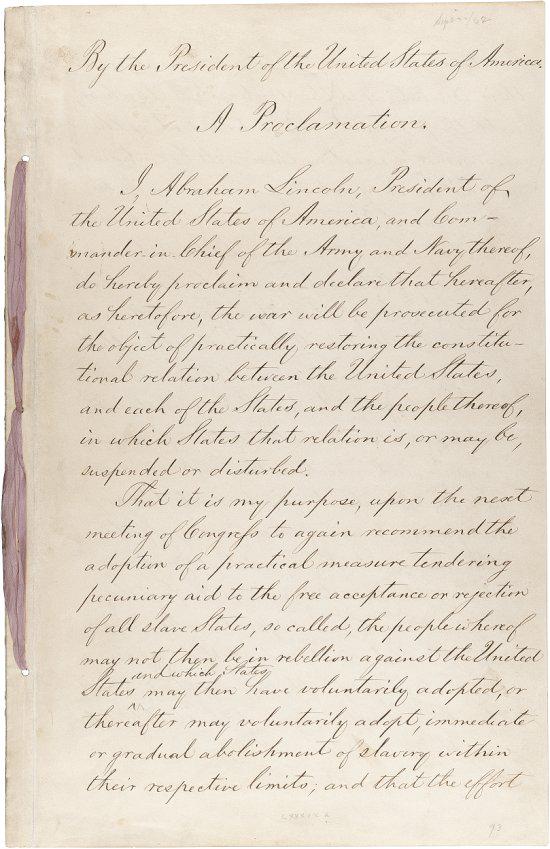 By the President of the United States of America.
A Proclamation.
I, Abraham Lincoln, President of
the United States of America, and Com-
mander-in-Chief of the Army and Navy thereof,
do hereby proclaim and declare that hereafter,
as heretofore, the war will be prosecuted for
the object of practically restoring the constitu-
tional relation between the United States,
and each of the States, and the people thereof,
in which States that relation is, or may be,
suspended or disturbed.
That it is my purpose, upon the next
meeting of Congress to again recommend the
adoption of a practical measure tendering
pecuniary aid to the free acceptance or rejection
of all slave States, so called, the people whereof
may not then be in rebellion against the United
and which States
States may then have voluntarily adopted, or
thereafter may voluntarily adopt, immediate
or gradual abolishment of slavery within
their respective limits; and that the effort
93